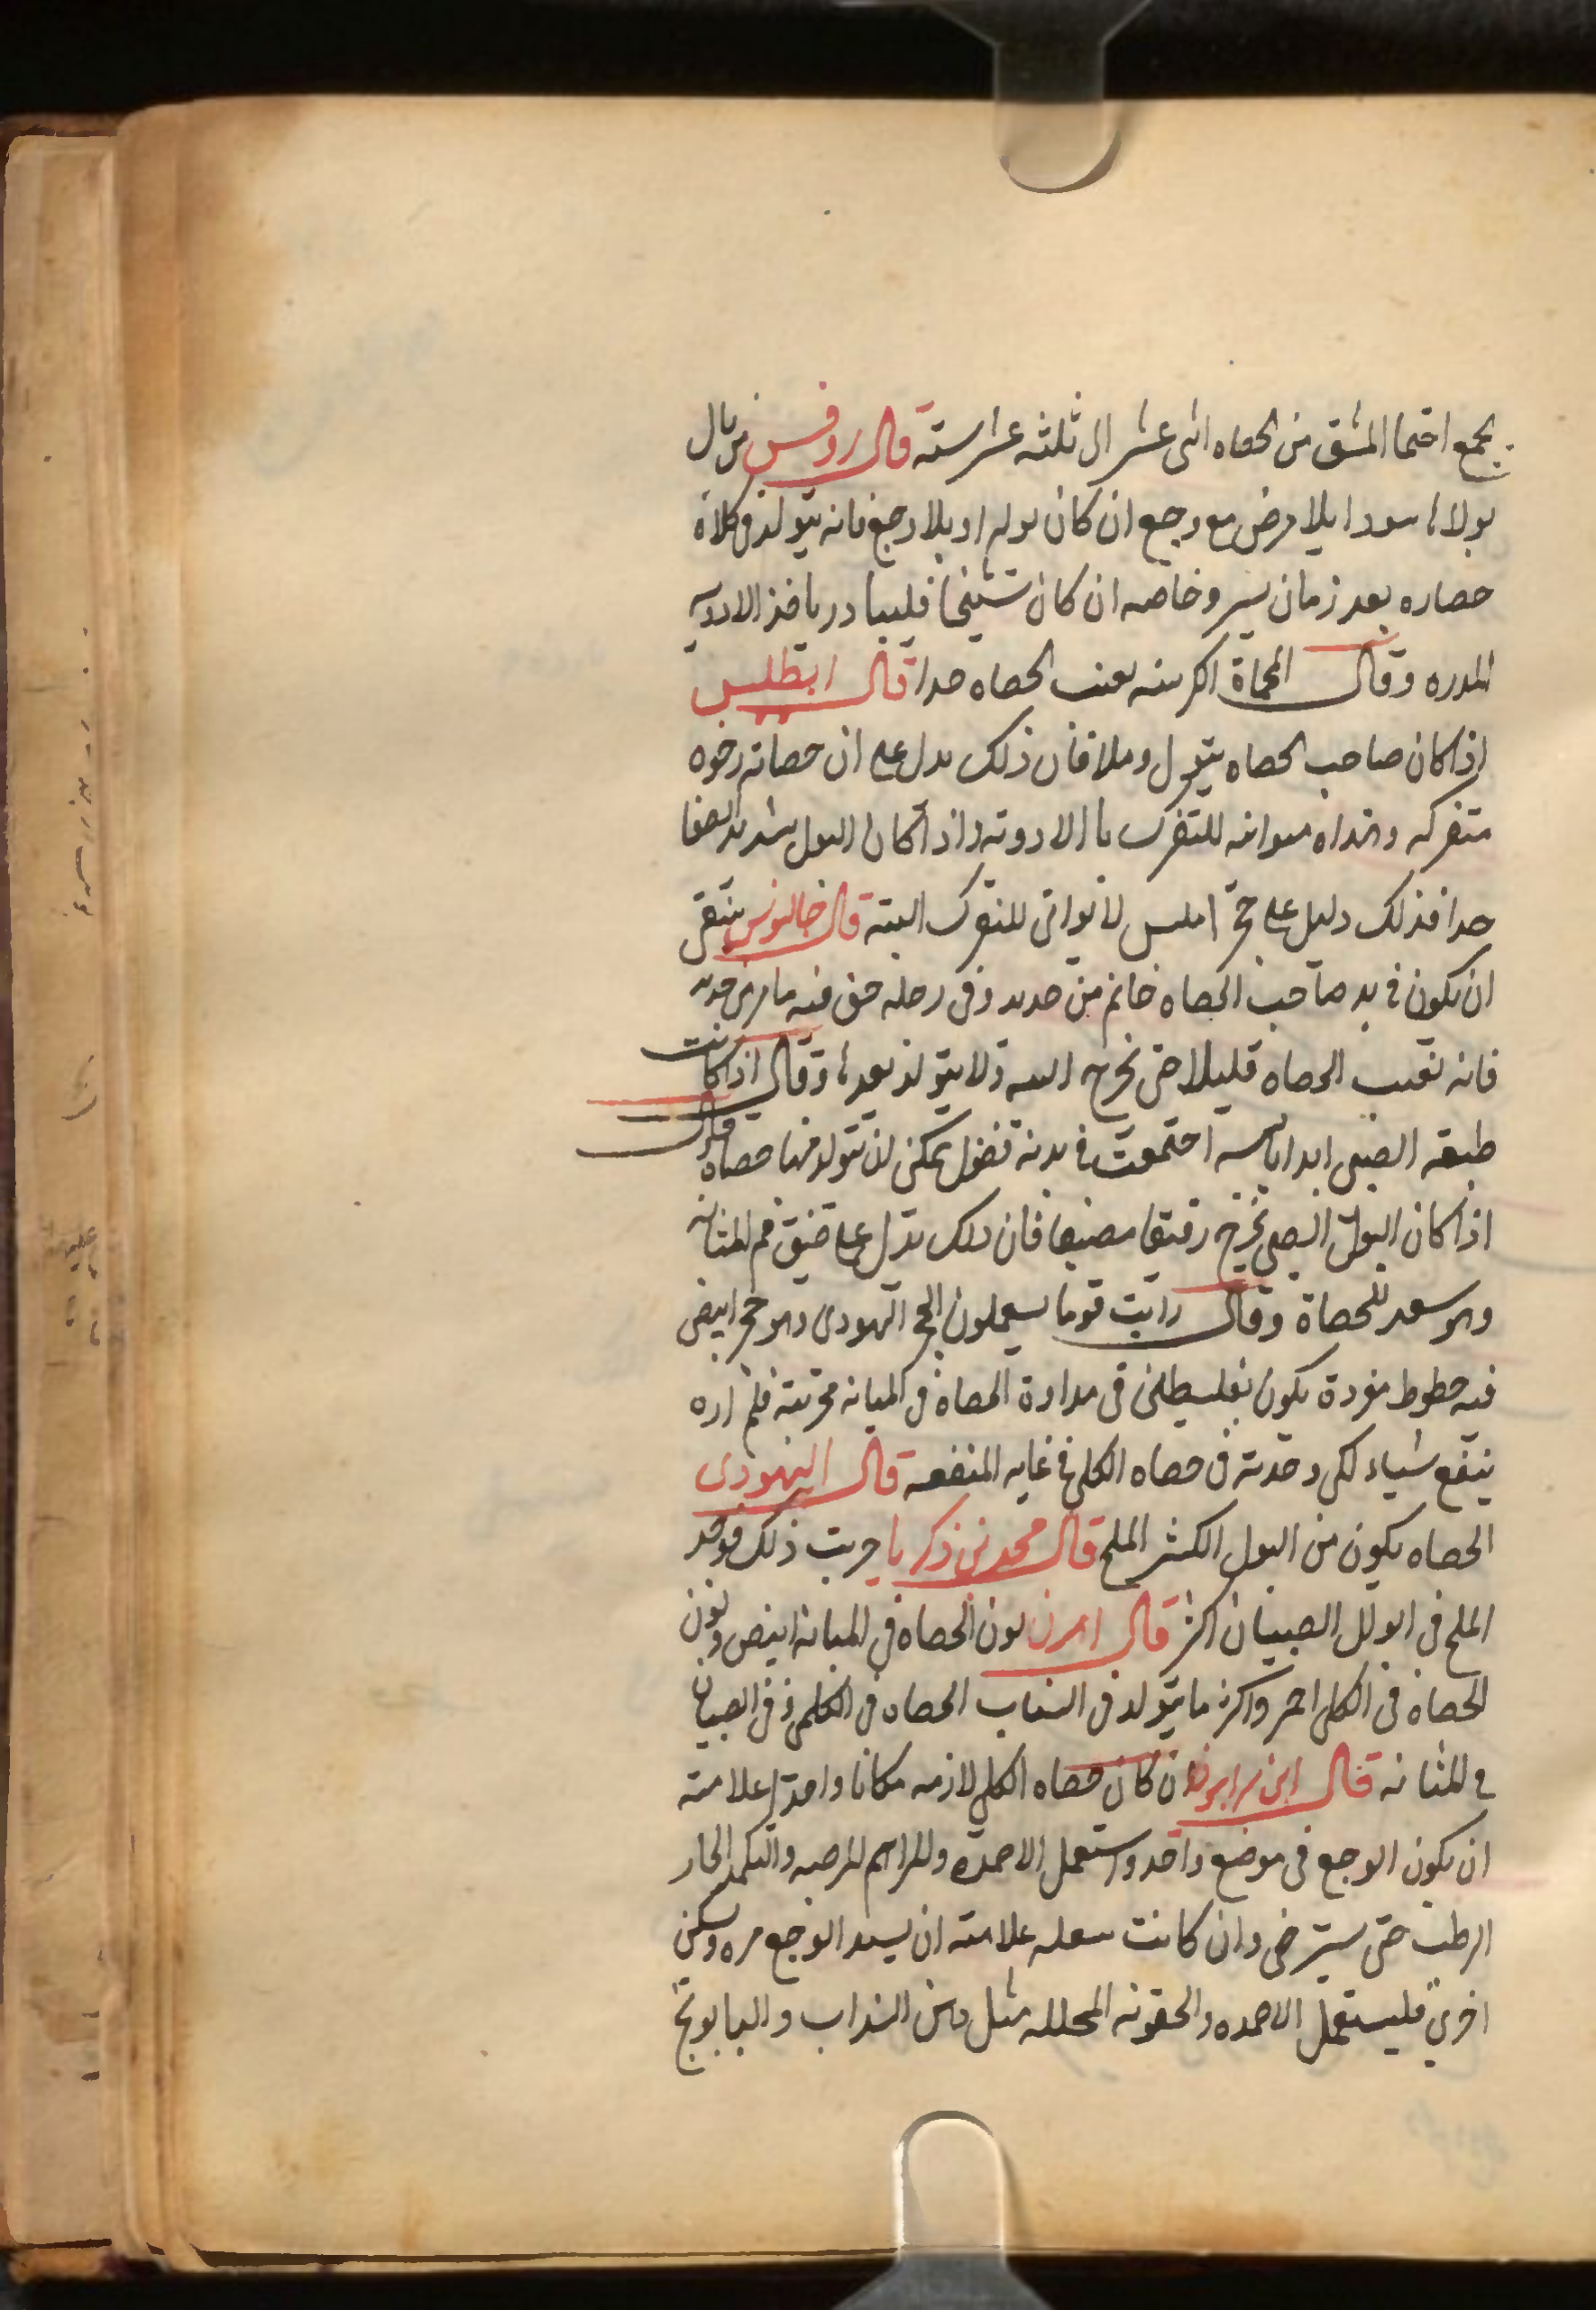 يجمع احتما المشق من الحصاه اثنى عشر الى ثلثه عشر سنه قال روفس من بال
بولا اسودا بلا مرض مع وجع ان كان بوله او بلا وجع فانه يتولد فى كلاه
حصاره بعد زمان يسير وخاصه ان كان شيخا فليبادر باخذ الادويه
المدره وقال اكل منه تفتت الحصاه جدا قال
اذا كان صاحب الحصاه يبول رملا فان ذلك يدل على ان حصاته رخوه
متفركه موافقه للتفرك با الادويه واذا كان البول شديد الصفا
جدا فذلك دليل على حجر املس لا يواتى للتفرك البته قال جالنوس ينبغى
ان يكون فى يد صاحب الحصاه خاتم من حديد وفى رجله خف فيه مامرى حديد
فانه تفتت الحصاه قليلا حتى تخرج البته ولا يتولد بعدها وقال اذا كانت
طبيعه الصبى ابدا يابسه اجتمعت فى بدنه فضول يمكن ان تتولد منها حصاه وقال
اذا كان البول الصبى يخرج رقيقا فان ذلك يدل على ضيق فم المثانه
وهو للحصاة وقال رايت قوما يستعملون الحجر اليهودى وهو حجر ابيض
فيه خطوط مفردة يكون بفلسطين فى مداوة الحصاه فى المثانه فجربته فلم اره
ينفع شياء لكن وجدته فى حصاه الكلى فى غايه المنفعه قال اليهودى
الحصاه يكون من البول الكثير الملح قال محمد بن زكريا جربت ذلك فوجد
الملح فى ابوال الصبيان اكثر قال اهرن لون الحصاه فى المثانه ابيض ولون
الحصاه فى الكلى احمر واكثر ما يتولد فى الشباب الحصاه فى الكلى وفى الصبيان
فى المثانه قال ابن سرابيون ان كان حصاه الكلى لازمه مكانا واحدا علامته
ان يكون الوجع فى موضع واحد واستعمل الاضمده والمراهم المرخيه والتكميد الحار
الرطب حتى يسترخى وان كانت منتقله علامته ان يشتد الوجع مره ويسكن
اخرى فليستعمل الاضمده والحقونه المحلله مثل دهن السذاب والبابونج